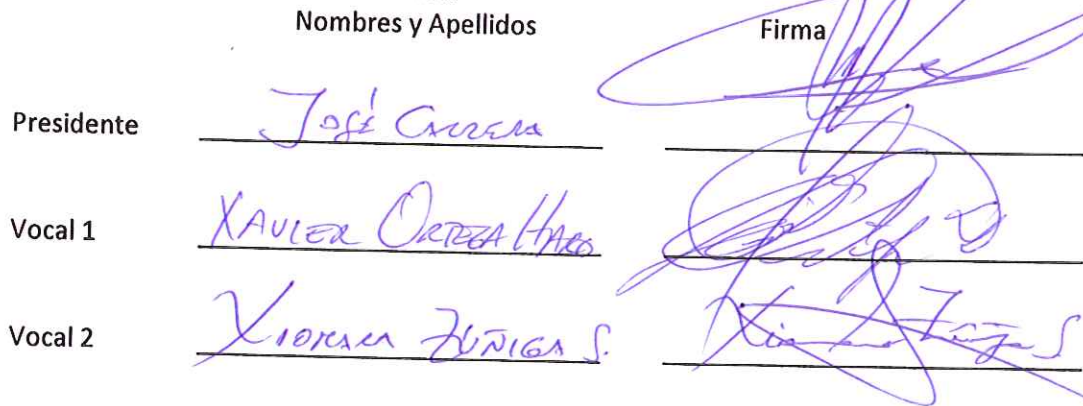 Nombres y Apellidos Firma
Presidente José Carrera
Vocal 1 XAVIER ORTEGA HARO
Vocal 2 XIOMARA ZÚÑIGA S. Xiomara Zúñiga S